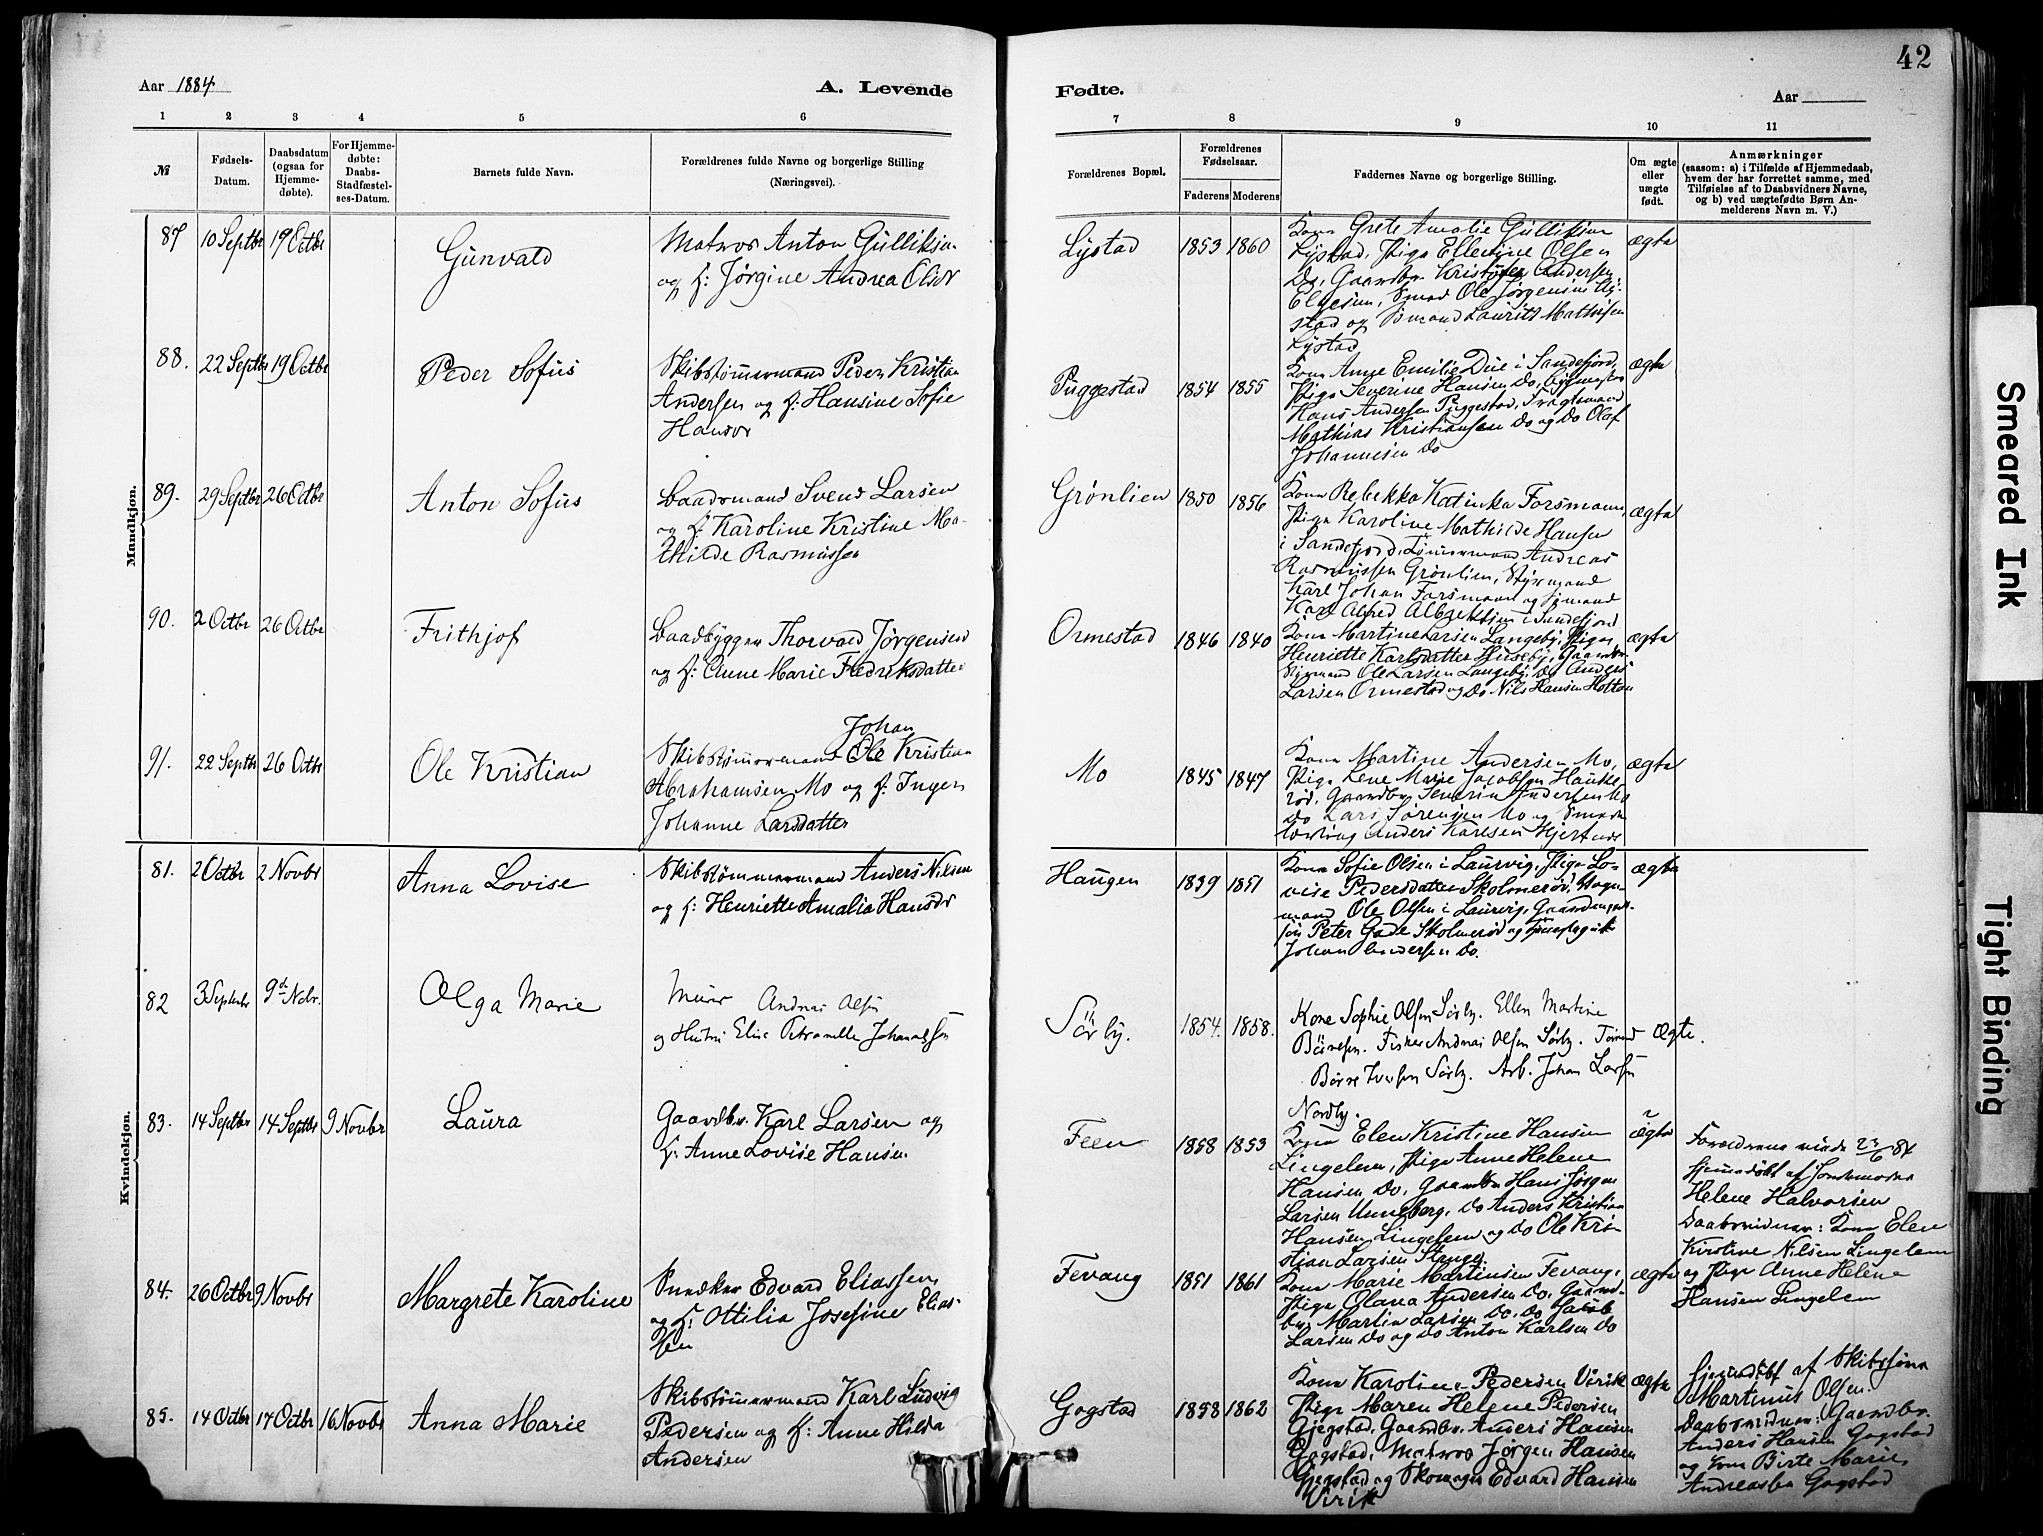 42
Aar 1884
A. Levende
Fødte.
Aar
1 2 3 4 5 6 7 8 9 10 11
№
Fødsels-
Datum.
Daabsdatum
(ogsaa for
Hjemme-
døbte).
For Hjemme-
døbte:
Daabs-
Stadfæstel-
ses-Datum.
Barnets fulde Navn.
Forældrenes fulde Navne og borgerlige Stilling
(Næringsvei).
Forældrenes Bopæl.
Forældrenes
Fødselsaar.
Faderens Moderens
Faddernes Navne og borgerlige Stilling.
Om ægte
eller
uægte
født.
Anmærkninger
(saasom: a) i Tilfælde af Hjemmedaab,
hvem der har forrettet samme, med
Tilføielse af to Daabsvidners Navne,
og b) ved uægtefødte Børn An-
melderens Navn m. V.)
Mandkjøn.
87 10 Septbr 19 Octbr
Gunvald
Matros Anton Gulliksen
og H: Jørgine Andrea Olsdr
Lystad
1853 1860
Kone Grete Amalie Gulliksen
Lystad, Pige Ellevine Olsen
Do, Gaardbr. Kristofer Andersen
Elgesem, Smed Ole Jørgensen Ly-
stad og Sømand Laurits Mathisen
Lystad
ægte
88. 22 Septbr 19 Octbr
Peder Sofus
Skibstømmermand Peder Kristian
Andersen og H: Hansine Sofie
Hansdr
Puggestad
1854 1855
Kone Anne Emilie Due i Sandefjord,
Pige Severine Hansen Do,
Hans Andersen Puggestad,
Mathias Kristiansen Do og Do Olaf
Johannesen Do
ægte
89. 29 Septbr 26 Octbr
Anton Sofus
Baadsmand Svend Larsen
og H: Karoline Kristine Ma-
thilde Rasmussen
Grønlien
1850 1856
Kone Rebekka Katinka Forsmann,
Pige Karoline Mathilde Hansen
i Sandefjord, Tømmermand Andreas
Rasmussen Grønlien, Styrmand
Karl Johan Forsmann og Sømand
Karl Alfred Albrektsen i Sandefjord
ægte
90. 2 Octbr 26 Octbr
Frithjof
Baadbygger Thorvald Jørgensen
og H: Anne Marie Fredriksdatter
Ormestad
1846 1840
Kone Martine Larsen Langeby, Pige
Henriette Karlsdatter Huseby, Gaardbr.
Ole Larsen Langeby, Do Anders
Larsen Ormestad og Do Nils Hansen Holtan
ægte
91. 22 Septbr 26 Octbr
Ole Kristian
Johan
Skibstømmermand Ole Kristian
Abrahamsen Mo og H: Inger
Johanne Larsdatter
Mo
1845 1847
Kone Martine Andersen Mo,
Pige Lene Marie Jacobsen Hauke-
rød, Gaardbr. Severin Andersen Mo
Do Lars Sørensen Mo og Smede-
lærling Anders Karlsen Hjertnes
ægte
Kvindekjøn.
81. 2 Octbr 2 Novbr
Anna Lovise
Skibstømmermand Anders Nilsen
og H: Henriette Amalia Hansdr
Haugen
1839 1851
Kone Sofie Olsen i Laurvig, Pige Lo-
vise Pedersdatter Skolmerød, Vogn-
mand Ole Olsen i Laurvig, Gaardmands-
søn Peter Gade Skolmerød og
Johan Andersen Do.
ægte
82 3 Septembr 9de Nobr.
Olga Marie
Murer Andreas Olsen
og Hustru Elise Petronelle Johannessen
Sørby.
1854. 1858.
Kone Sophie Olsen Sørby. Ellen Martine
Børresen. Fisker Andreas Olsen Sørby. Tømmd
Børre Iversen Sørby. Arb. Johan Larsen
Nordby.
Ægte.
83. 14 Septbr 14 Septbr 9 Novbr
Laura
Gaardbr. Karl Larsen og
H: Anne Lovise Hansen
Feen
1858 1853
Kone Elen Kristine Hansen
Lingelem, Pige Anne Helene
Hansen Do, Gaardbr Hans Jørgen
Larsen Unneberg, Do Anders Kristian
Hansen Lingelem og Do Ole Kri-
stian Larsen Stange.
ægte
Forældrene viede 23/6 84
Hjemmedøbt af Jordemoder
Helene Halvorsen
Daabsvidner: Kone Elen
Kirstine Nilsen Lingelem
og Pige Anne Helene
Hansen Lingelem
84. 26 Octbr 9 Novbr
Margrete Karoline
Snedker Edvard Eliassen
og H: Ottilia Josefine Elias-
sen
Fevang
1851 1861
Kone Marie Martinsen Fevang,
Pige Olava Andersen Do, Gaard-
br. Martin Larsen Do, Do Jakob
Larsen Do og Do Anton Karlsen Do
ægte
85. 14 Octbr 14 Octbr 16 Novbr
Anna Marie
Skibstømmermand Karl Ludvig
Pedersen og H: Anne Hilda
Andersen
Gogstad
1858 1862
Kone Karoline Pedersen Virik
Pige Maren Helene Pedersen
Gjegstad, Gaardbr. Anders Hansen
Gogstad, Matros Jørgen Hansen
Gjegstad og Skomager Edvard Hansen
Virik
ægte
Hjemmedøbt af Skibsfører
Martinus Olsen.
Daabsvidner: Gaardbr.
Anders Hansen Gogstad
og Kone Birte Marie
Andreasen Gogstad
Smeared Ink
Tight Binding